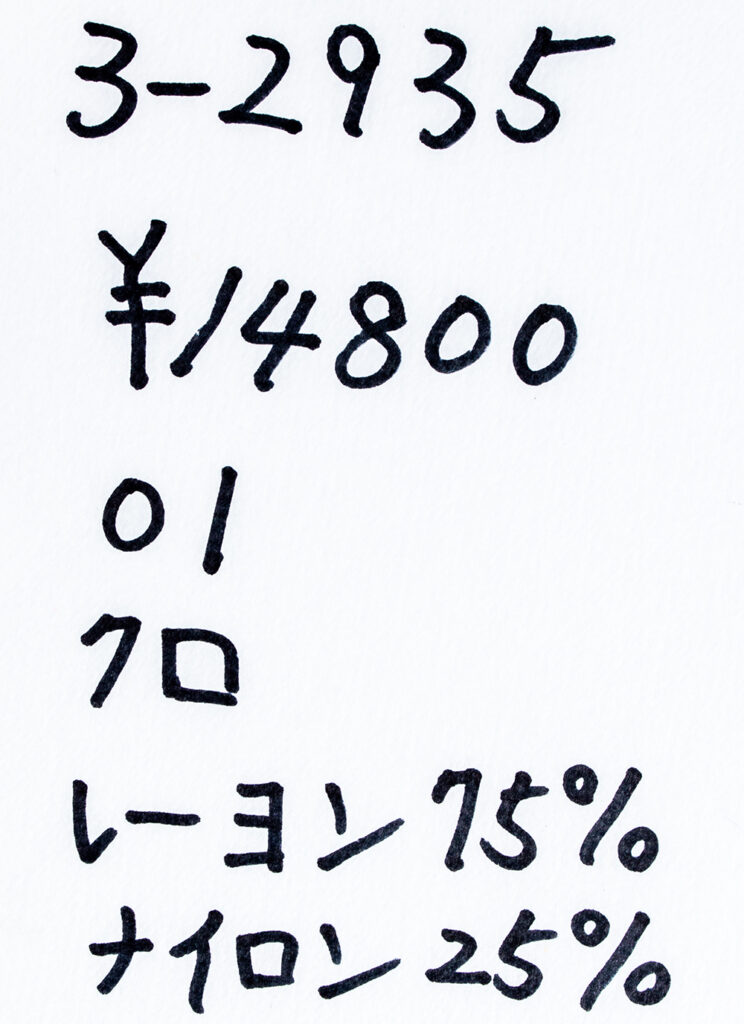 3-2935
¥14800
01
クロ
レーヨン 75%
ナイロン 25%